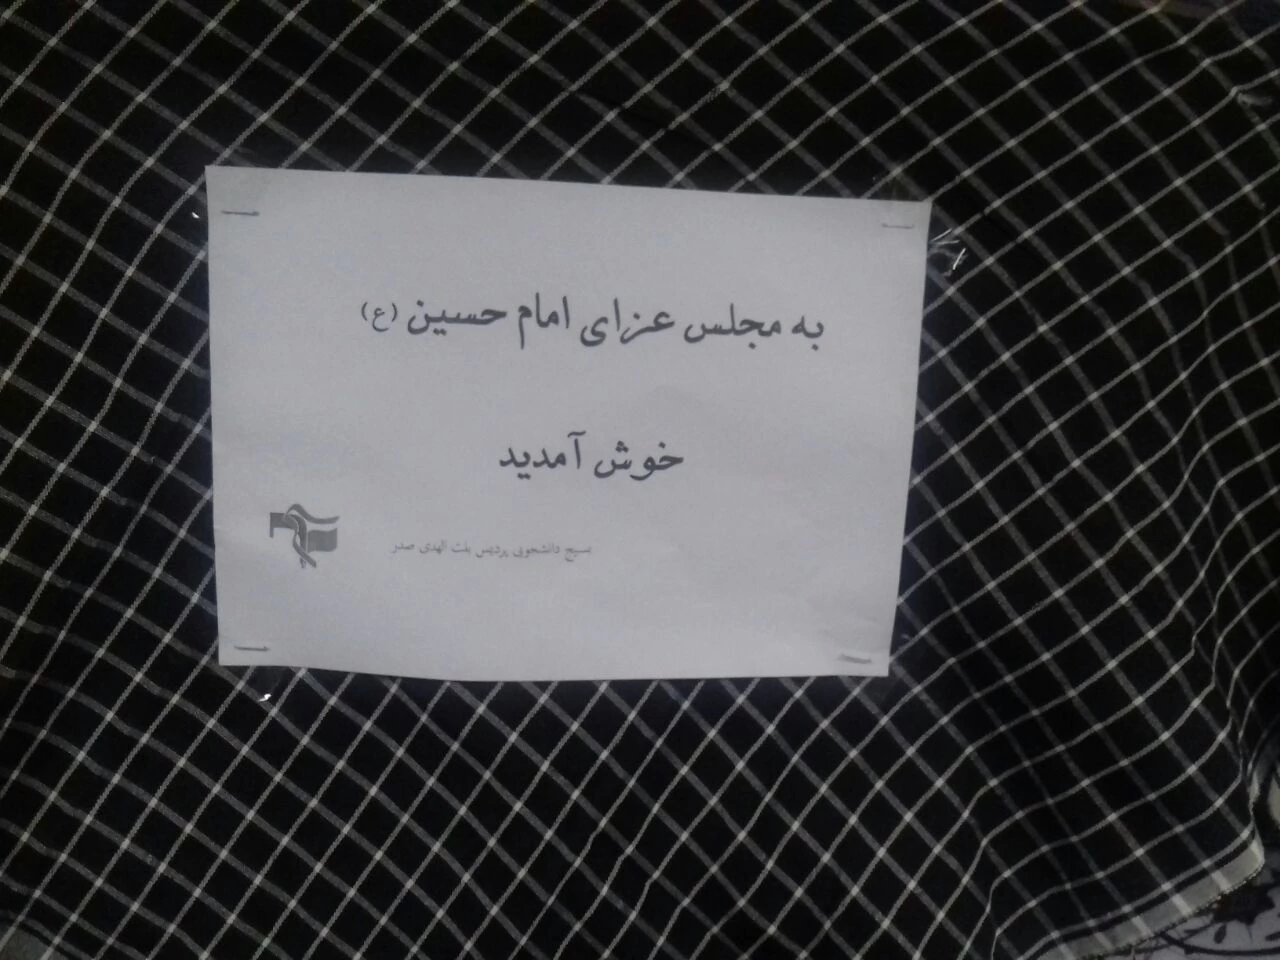 به مجلس عزای امام حسین (ع)
خوش آمدید
بسیج دانشجویی پردیس بنت الهدی صدر